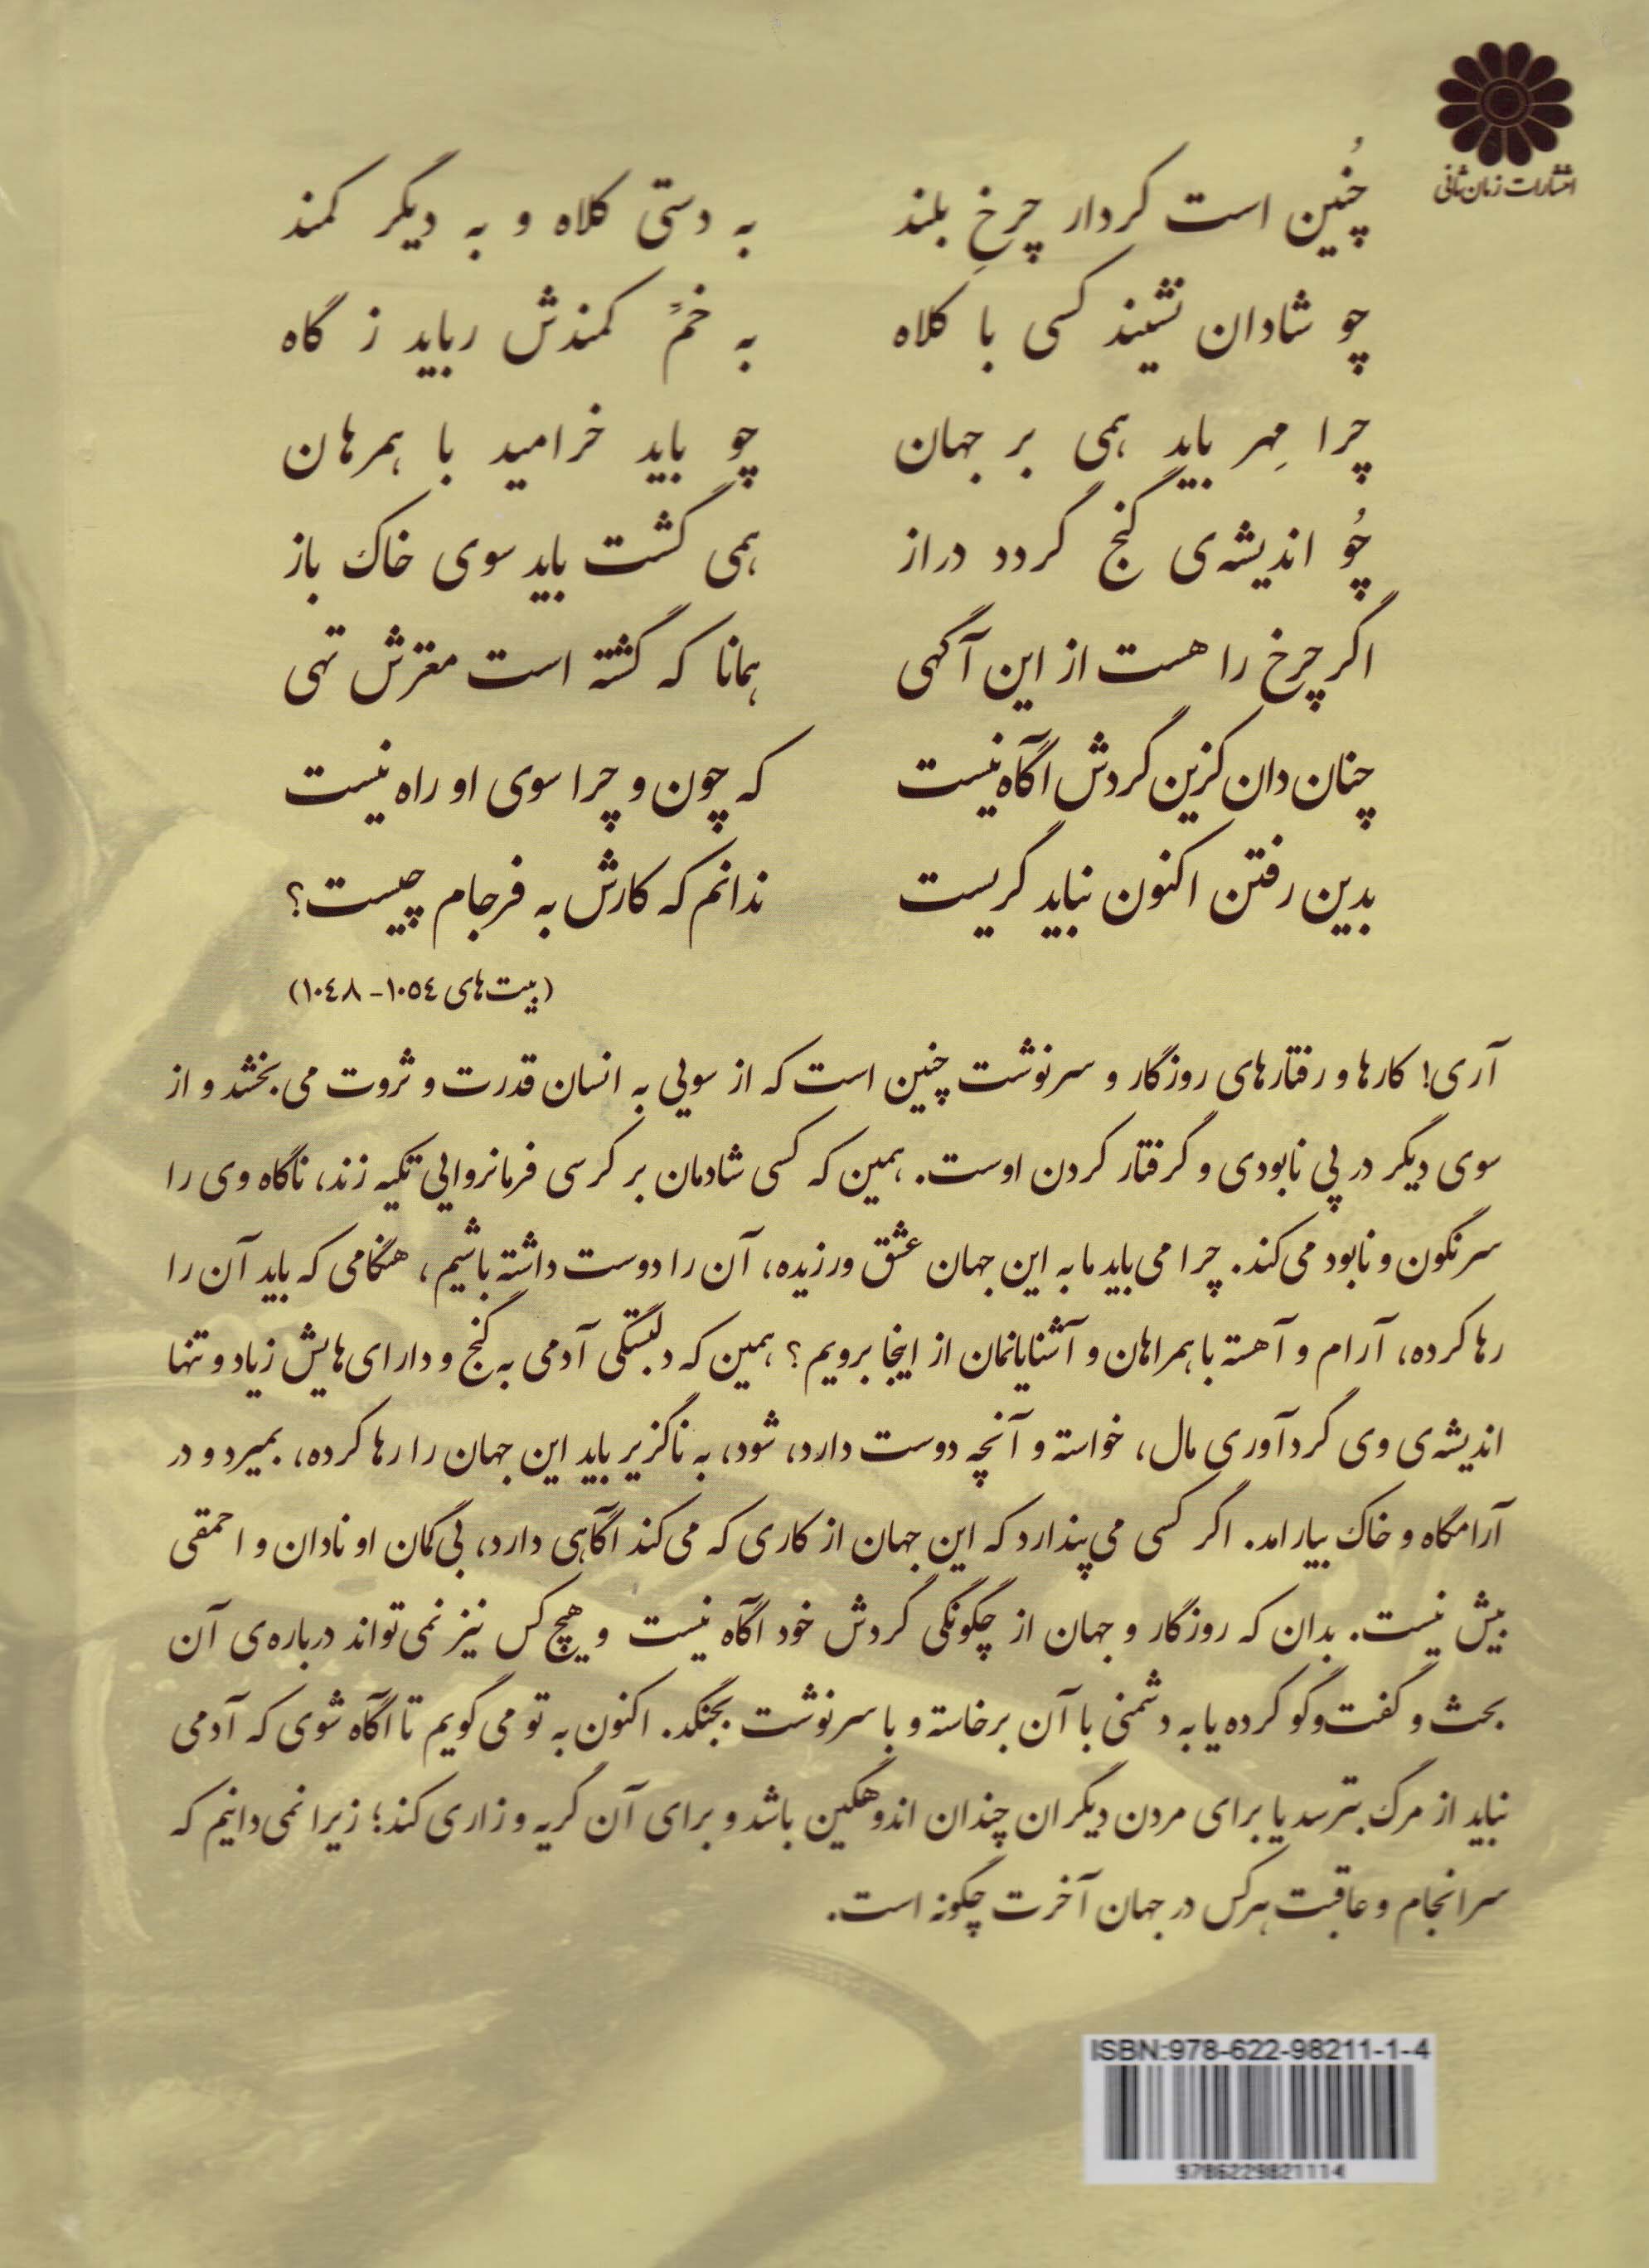 انتشارات زمان ثانی
چُنین است کردار چرخِ بلند به دستی کلاه و به دیگر کمند
چو شادان نشیند کسی با کلاه به خمِّ کمندش رباید ز گاه
چرا مِهر باید همی بر جهان چو باید خرامید با همرهان
چُو اندیشه‌ی گنج گردد دراز همی گشت باید سوی خاک باز
اگر چرخ را هست از این آگهی همانا که گشته است مغزش تهی
چنان دان کزین گردش آگاه نیست که چون و چرا سوی او راه نیست
بدین رفتن اکنون نباید گریست ندانم که کارش به فرجام چیست؟
(بیت‌های ۱۰۵۴-۱۰۴۸)
آری! کارها و رفتارهای روزگار و سرنوشت چنین است که از سویی به انسان قدرت و ثروت می‌بخشد و از
سوی دیگر در پی نابودی و گرفتار کردن اوست. همین که کسی شادمان بر کرسی فرمانروایی تکیه زند، ناگاه وی را
سرنگون و نابود می‌کند. چرا می‌باید ما به این جهان عشق ورزیده، آن را دوست داشته باشیم، هنگامی که باید آن را
رها کرده، آرام و آهسته با همراهان و آشنایانمان از اینجا برویم؟ همین که دلبستگی آدمی به گنج و دارای‌هایش زیاد و تنها
اندیشه‌ی وی گردآوری مال، خواسته و آنچه دوست دارد، شود، به ناگزیر باید این جهان را رها کرده، بمیرد و در
آرامگاه و خاک بیارامد. اگر کسی می‌پندارد که این جهان از کاری که می‌کند آگاهی دارد، بی‌گمان او نادان و احمقی
بیش نیست. بدان که روزگار و جهان از چگونگی گردش خود آگاه نیست و هیچ کس نیز نمی‌تواند درباره‌ی آن
بحث و گفت‌وگو کرده یا به دشمنی با آن برخاسته و با سرنوشت بجنگد. اکنون به تو می‌گویم تا آگاه شوی که آدمی
نباید از مرگ بترسد یا برای مردن دیگران چندان اندوهگین باشد و برای آن گریه و زاری کند؛ زیرا نمی‌دانیم که
سرانجام و عاقبت هرکس در جهان آخرت چگونه است.
ISBN:978-622-98211-1-4
9786229821114